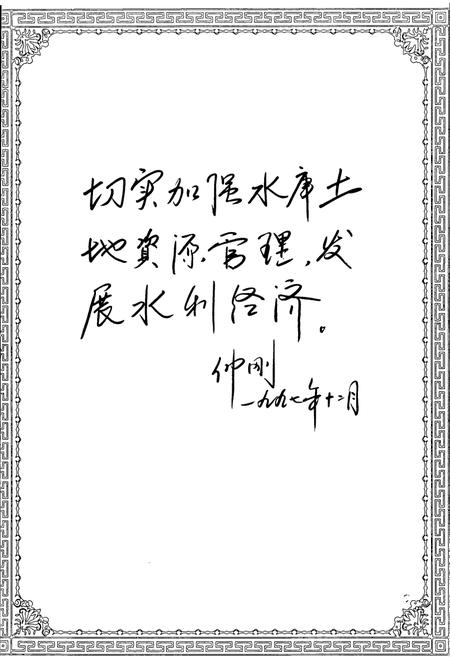 切实加强水库土
地資源管理，发
展水利经济。
仲刚
一九九七年十二月